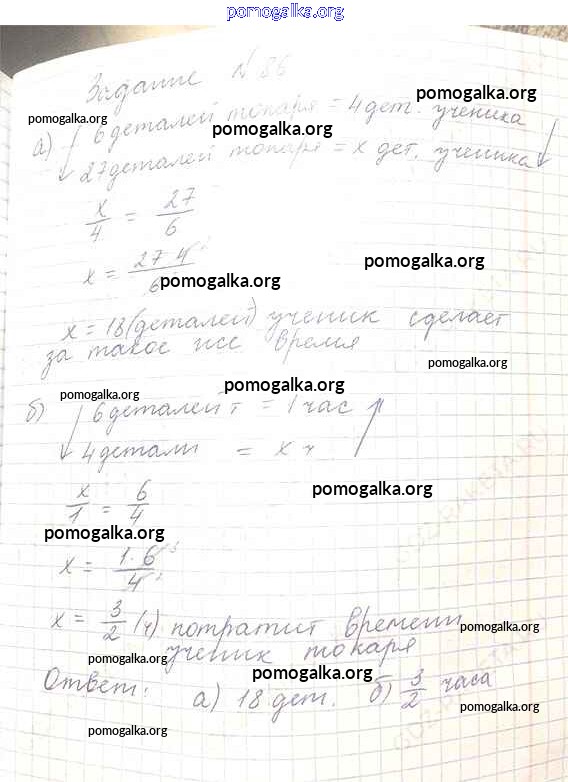 pomogalka.org
Задание № 86
pomogalka.org
pomogalka.org
а) 6 деталей токаря = 4 дет. ученика
pomogalka.org
27 деталей токаря = x дет. ученика
x/4 = 27/6
pomogalka.org
x = 27 4/6
pomogalka.org
x = 18 (деталей) ученик сделает
за такое же время
pomogalka.org
pomogalka.org
pomogalka.org
б) 6 деталей т = 1 час
4 детали = x ч
pomogalka.org
x/1 = 6/4
pomogalka.org
x = 1·6/4
x = 3/2 (ч) потратит времени
pomogalka.org
ученик токаря
pomogalka.org
pomogalka.org
Ответ: а) 18 дет. б) 3/2 часа
pomogalka.org
pomogalka.org